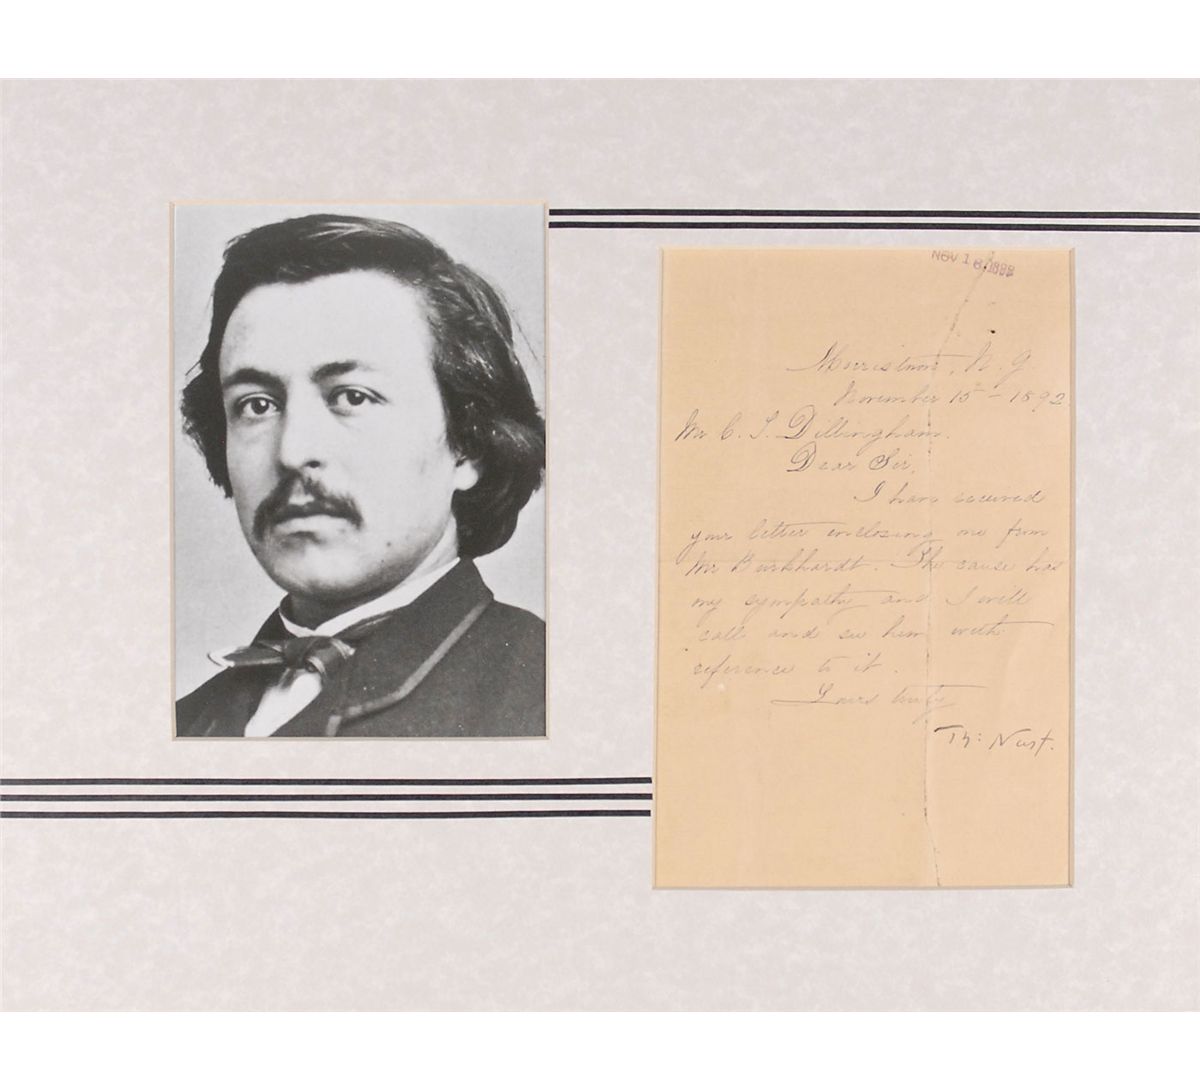 NOV 16 1892
Morristown, N. J.
November 15 - 1892.
Mr C. T. Dillingham.
Dear Sir,
I have received
your letter enclosing one from
Mr Burkhardt. The cause has
my sympathy and I will
call and see him with
reference to it.
Yours truly
Th: Nast.